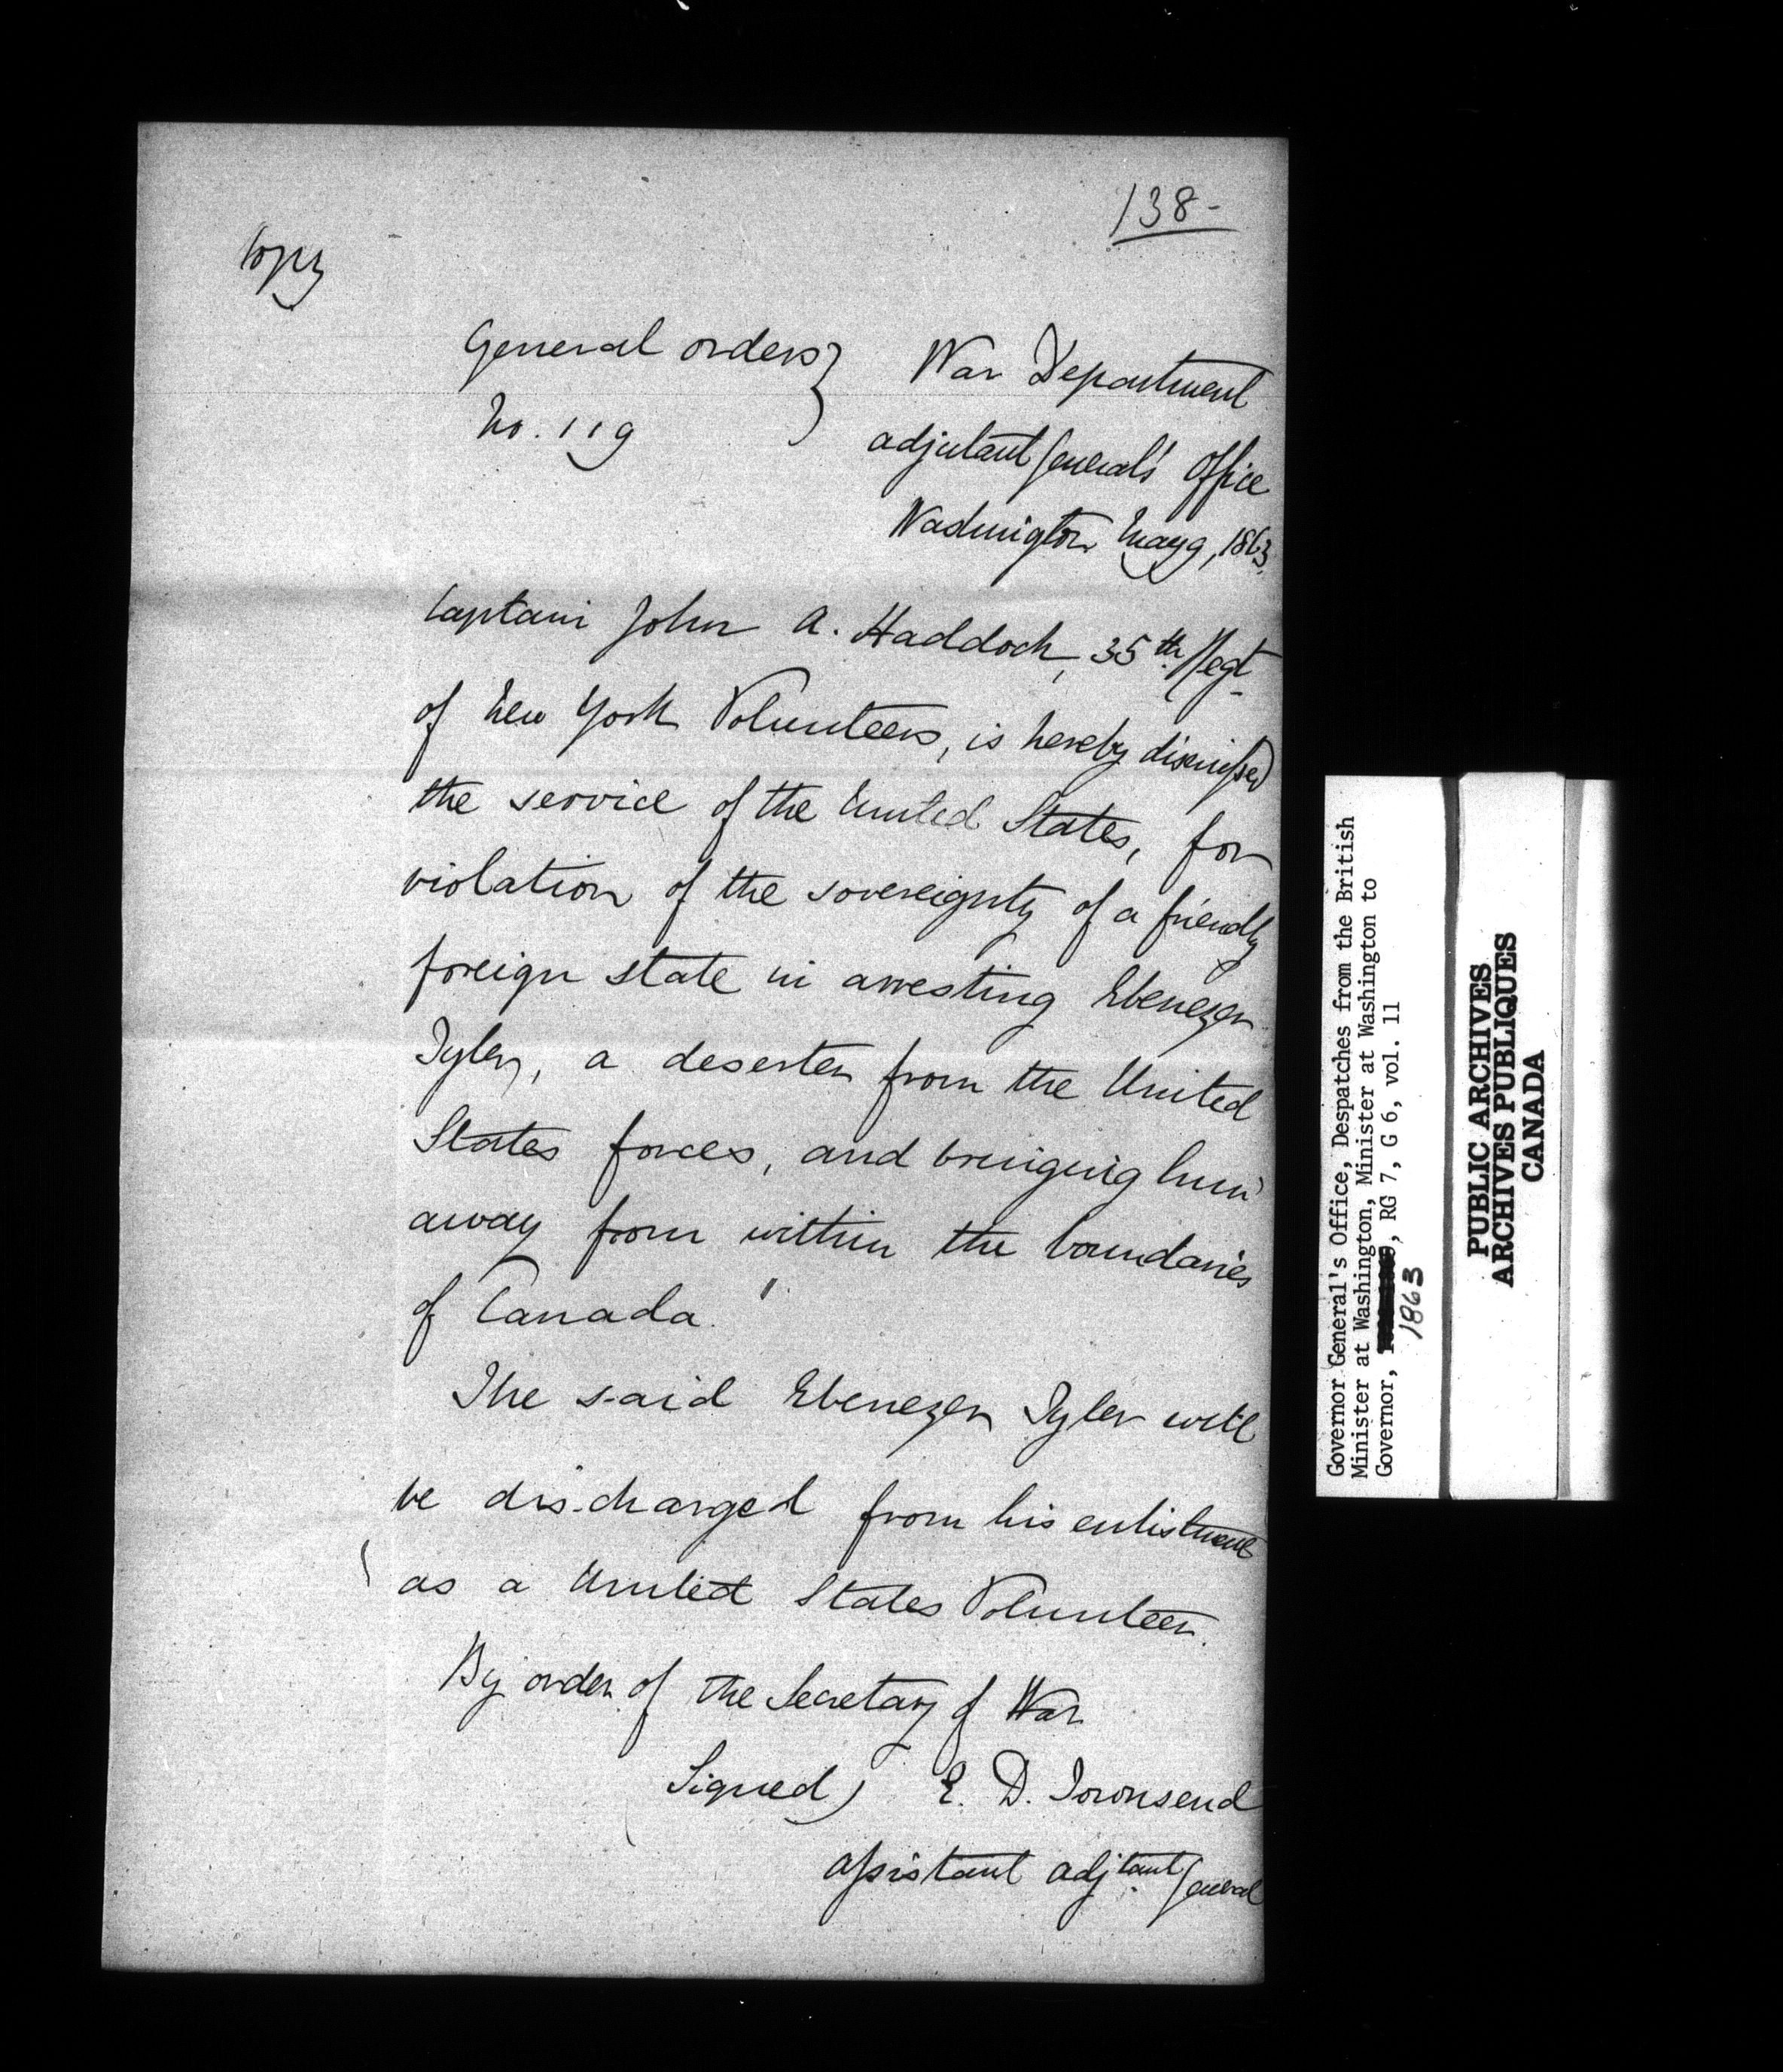 138-
Copy
General orders } War Department
No. 119
adjutant General's Office
Washington May 9, 1863.
Captain John A. Haddock, 35th. Regt
of New York Volunteers, is hereby dismissed
the service of the United States, for
violation of the sovereignty of a friendly
foreign state in arresting Ebenezer
Tyler, a deserter from the United
States forces, and bringing him
away from within the boundaries
of Canada.
The said Ebenezer Tyler will
be discharged from his enlistment
as a United States Volunteer.
By order of the Secretary of War
(Signed) E. D. Townsend
assistant adjtant General
Governor General's Office, Despatches from the British
Minister at Washington, Minister at Washington to
Governor, , RG 7, G 6, vol. 11
1863
PUBLIC ARCHIVES
ARCHIVES PUBLIQUES
CANADA